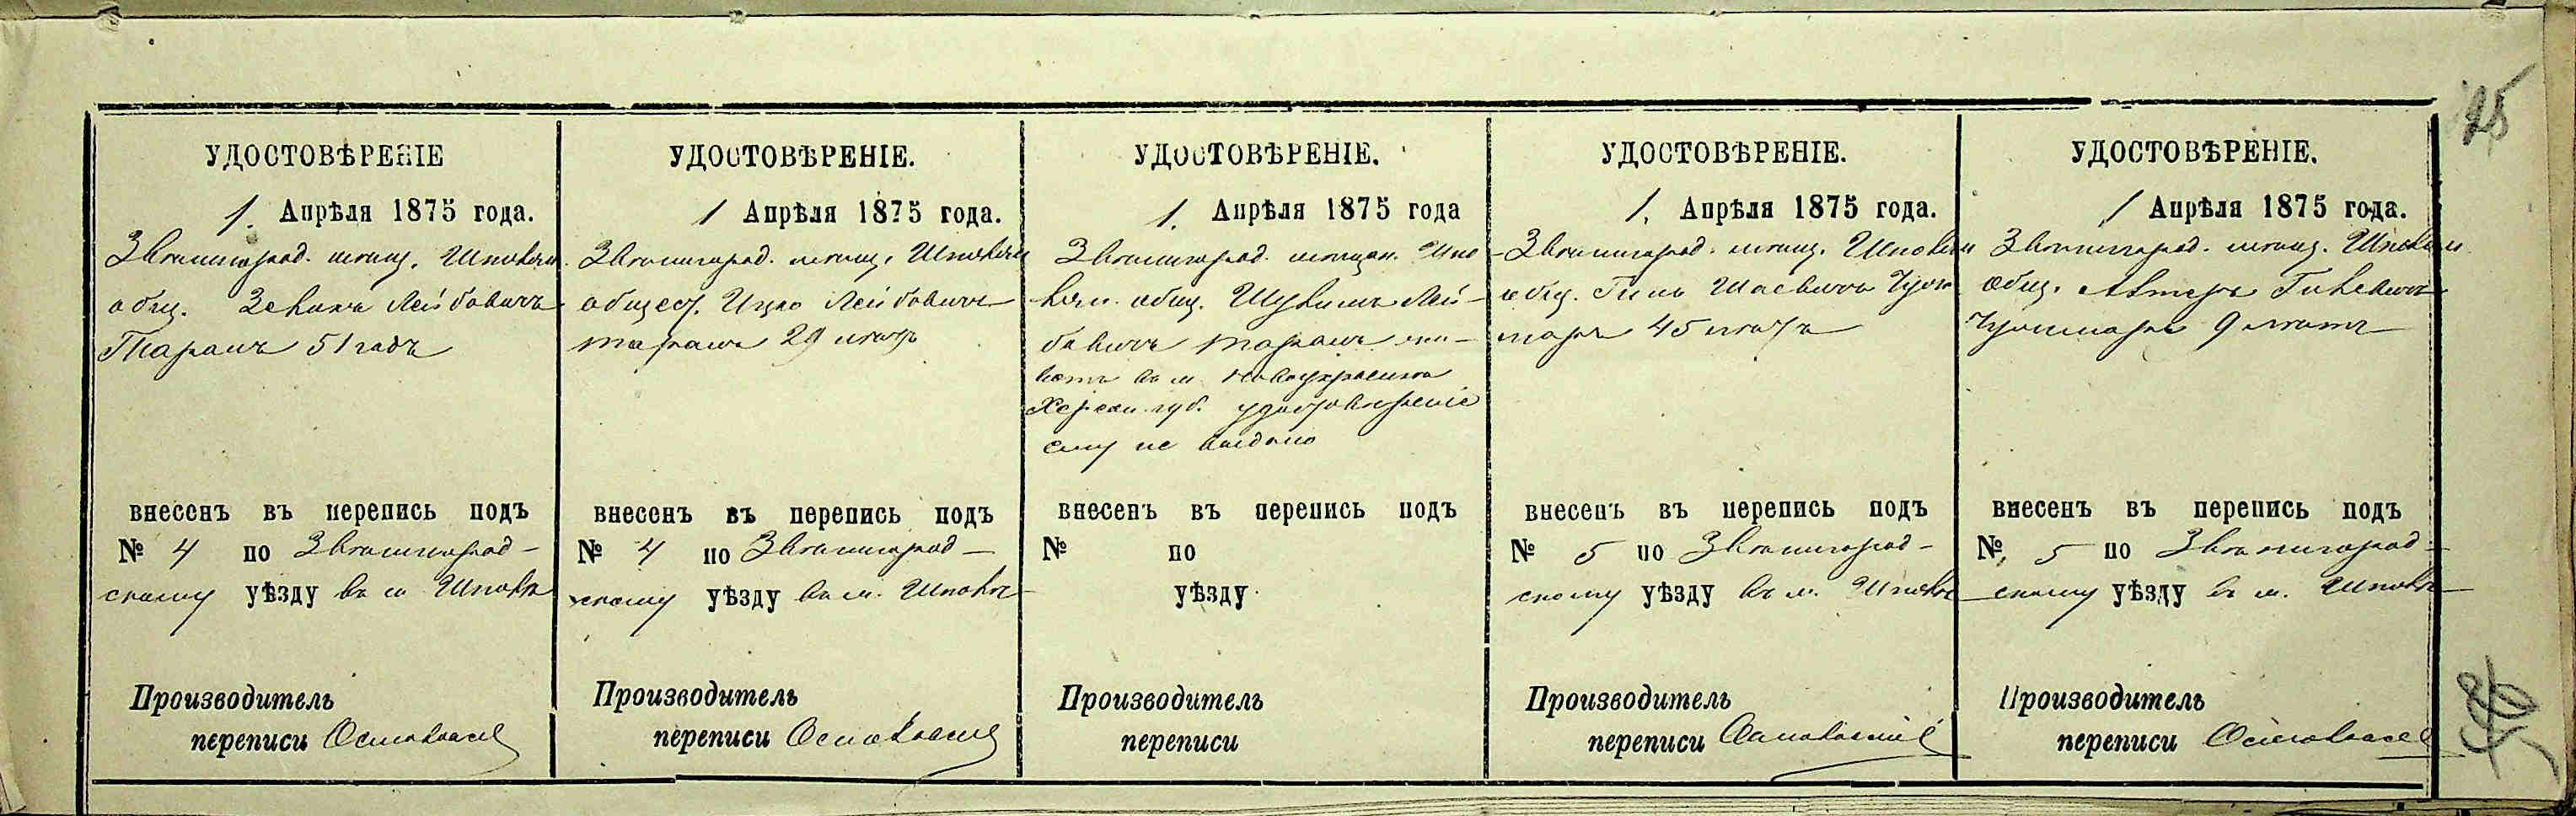 25
УДОСТОВѢРЕНІЕ
1. Апрѣля 1875 года.
Звенигород. мѣщ. Шполян.
общ. Зельманъ Лейбовичъ
Таранъ 51 годъ
внесенъ въ перепись подъ
№ 4 по Звенигород-
скому уѣзду въ м. Шполѣ
Производитель
переписи
УДОСТОВѢРЕНІЕ.
1 Апрѣля 1875 года.
Звенигород. мѣщ. Шполян
общест. Ицко Лейбовичъ
Таранъ 29 лѣтъ
внесенъ въ перепись подъ
№ 4 по Звенигород-
скому уѣзду въ м. Шполѣ
Производитель
переписи
УДОСТОВѢРЕНІЕ.
1. Апрѣля 1875 года
Звенигород. мѣщан. Шпо-
лян. общ. Лей-
бовичъ Таранъ жи-
ветъ въ м. Новоукраинка
Херсон. губ. удостовѣреніе
ему не выдано
внесенъ въ перепись подъ
№ по
уѣзду.
Производитель
переписи
УДОСТОВѢРЕНІЕ.
1. Апрѣля 1875 года.
Звенигород. мѣщ. Шполян
общ. Шаевичъ
45 лѣтъ
внесенъ въ перепись подъ
№ 5 по Звенигород-
скому уѣзду въ м. Шполѣ
Производитель
переписи
УДОСТОВѢРЕНІЕ.
1 Апрѣля 1875 года.
Звенигород. мѣщ. Шполян.
общ.
9 лѣтъ
внесенъ въ перепись подъ
№ 5 по Звенигород-
скому уѣзду въ м. Шполѣ
Производитель
переписи